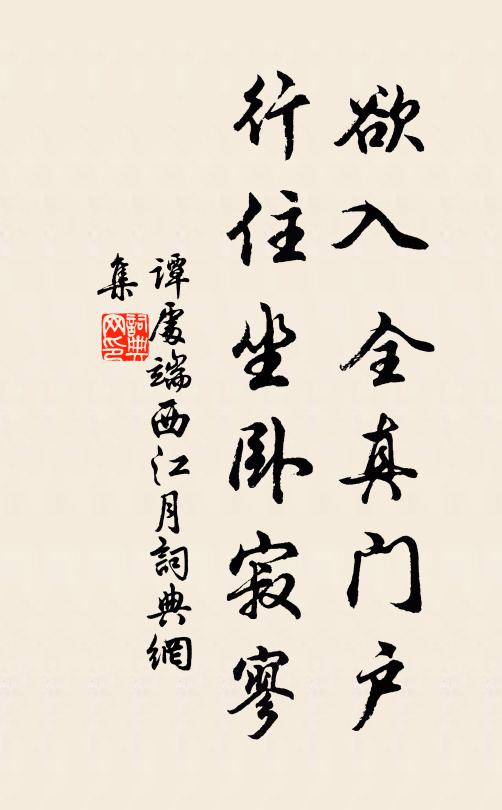 欲入全真门户
行住坐卧寂寥
谭處端西江月詞典網
集
詞典网印